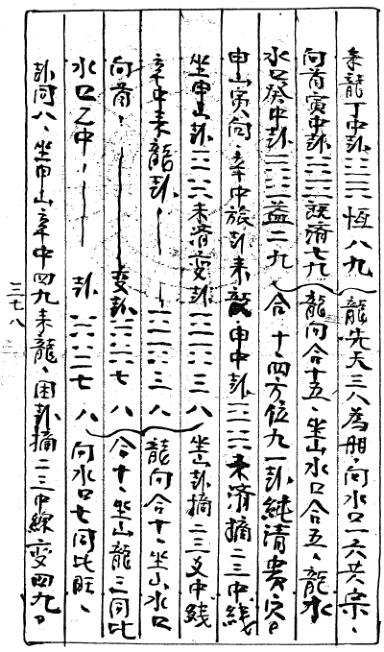 來龍丁中卦☳☴恆八九
龍先天三八為朋、向水口一六共宗、
向首寅中卦☵☲既濟七九
龍向合十五、坐山水口合五、龍水
水口癸中卦☴☳益二九
合十、四方位九一卦純清貴穴。
申山寅向、辛中旅卦來龍申中卦未濟摘二三中綫
坐申山卦未濟變卦三八
坐山卦摘二三爻中綫
辛中來龍卦三八
龍向合十、坐山水口
向首、變卦七八
合十、坐山龍三同比
水口乙中卦二七八
向水口七同比旺、
卦同八、坐申山辛中四九來龍、困卦摘二三中線變四九。
三七八